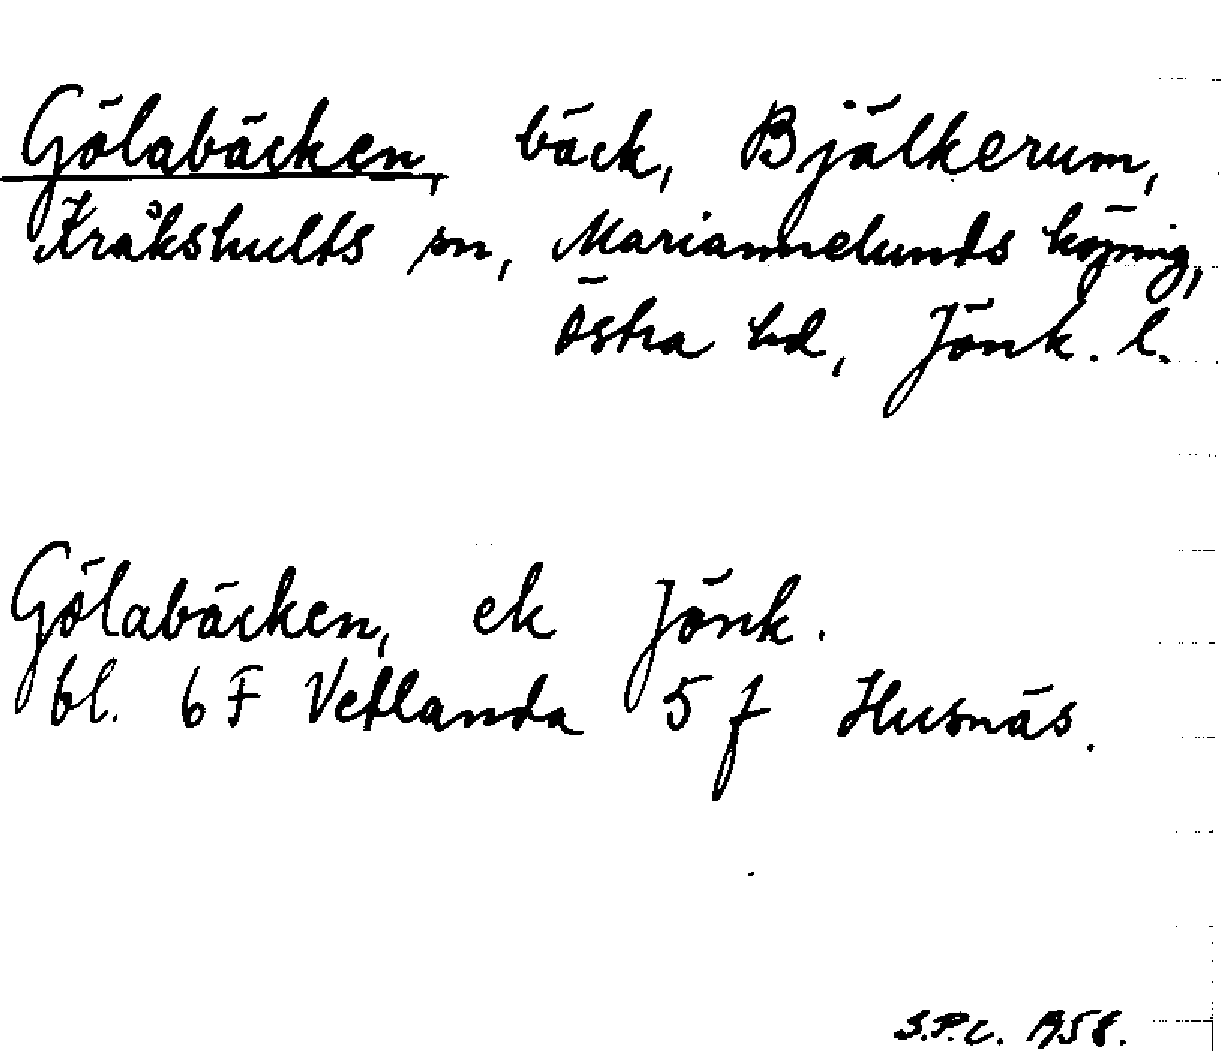 Gölabäcken, bäck, Bjälkerum,
Kråkshults sn, Mariannelunds köping,
Östra hd, Jönk. l.
Gölabäcken, ek Jönk.
bl. 6 F Vetlanda 5 f Husnäs.
S.P.C. 1958.